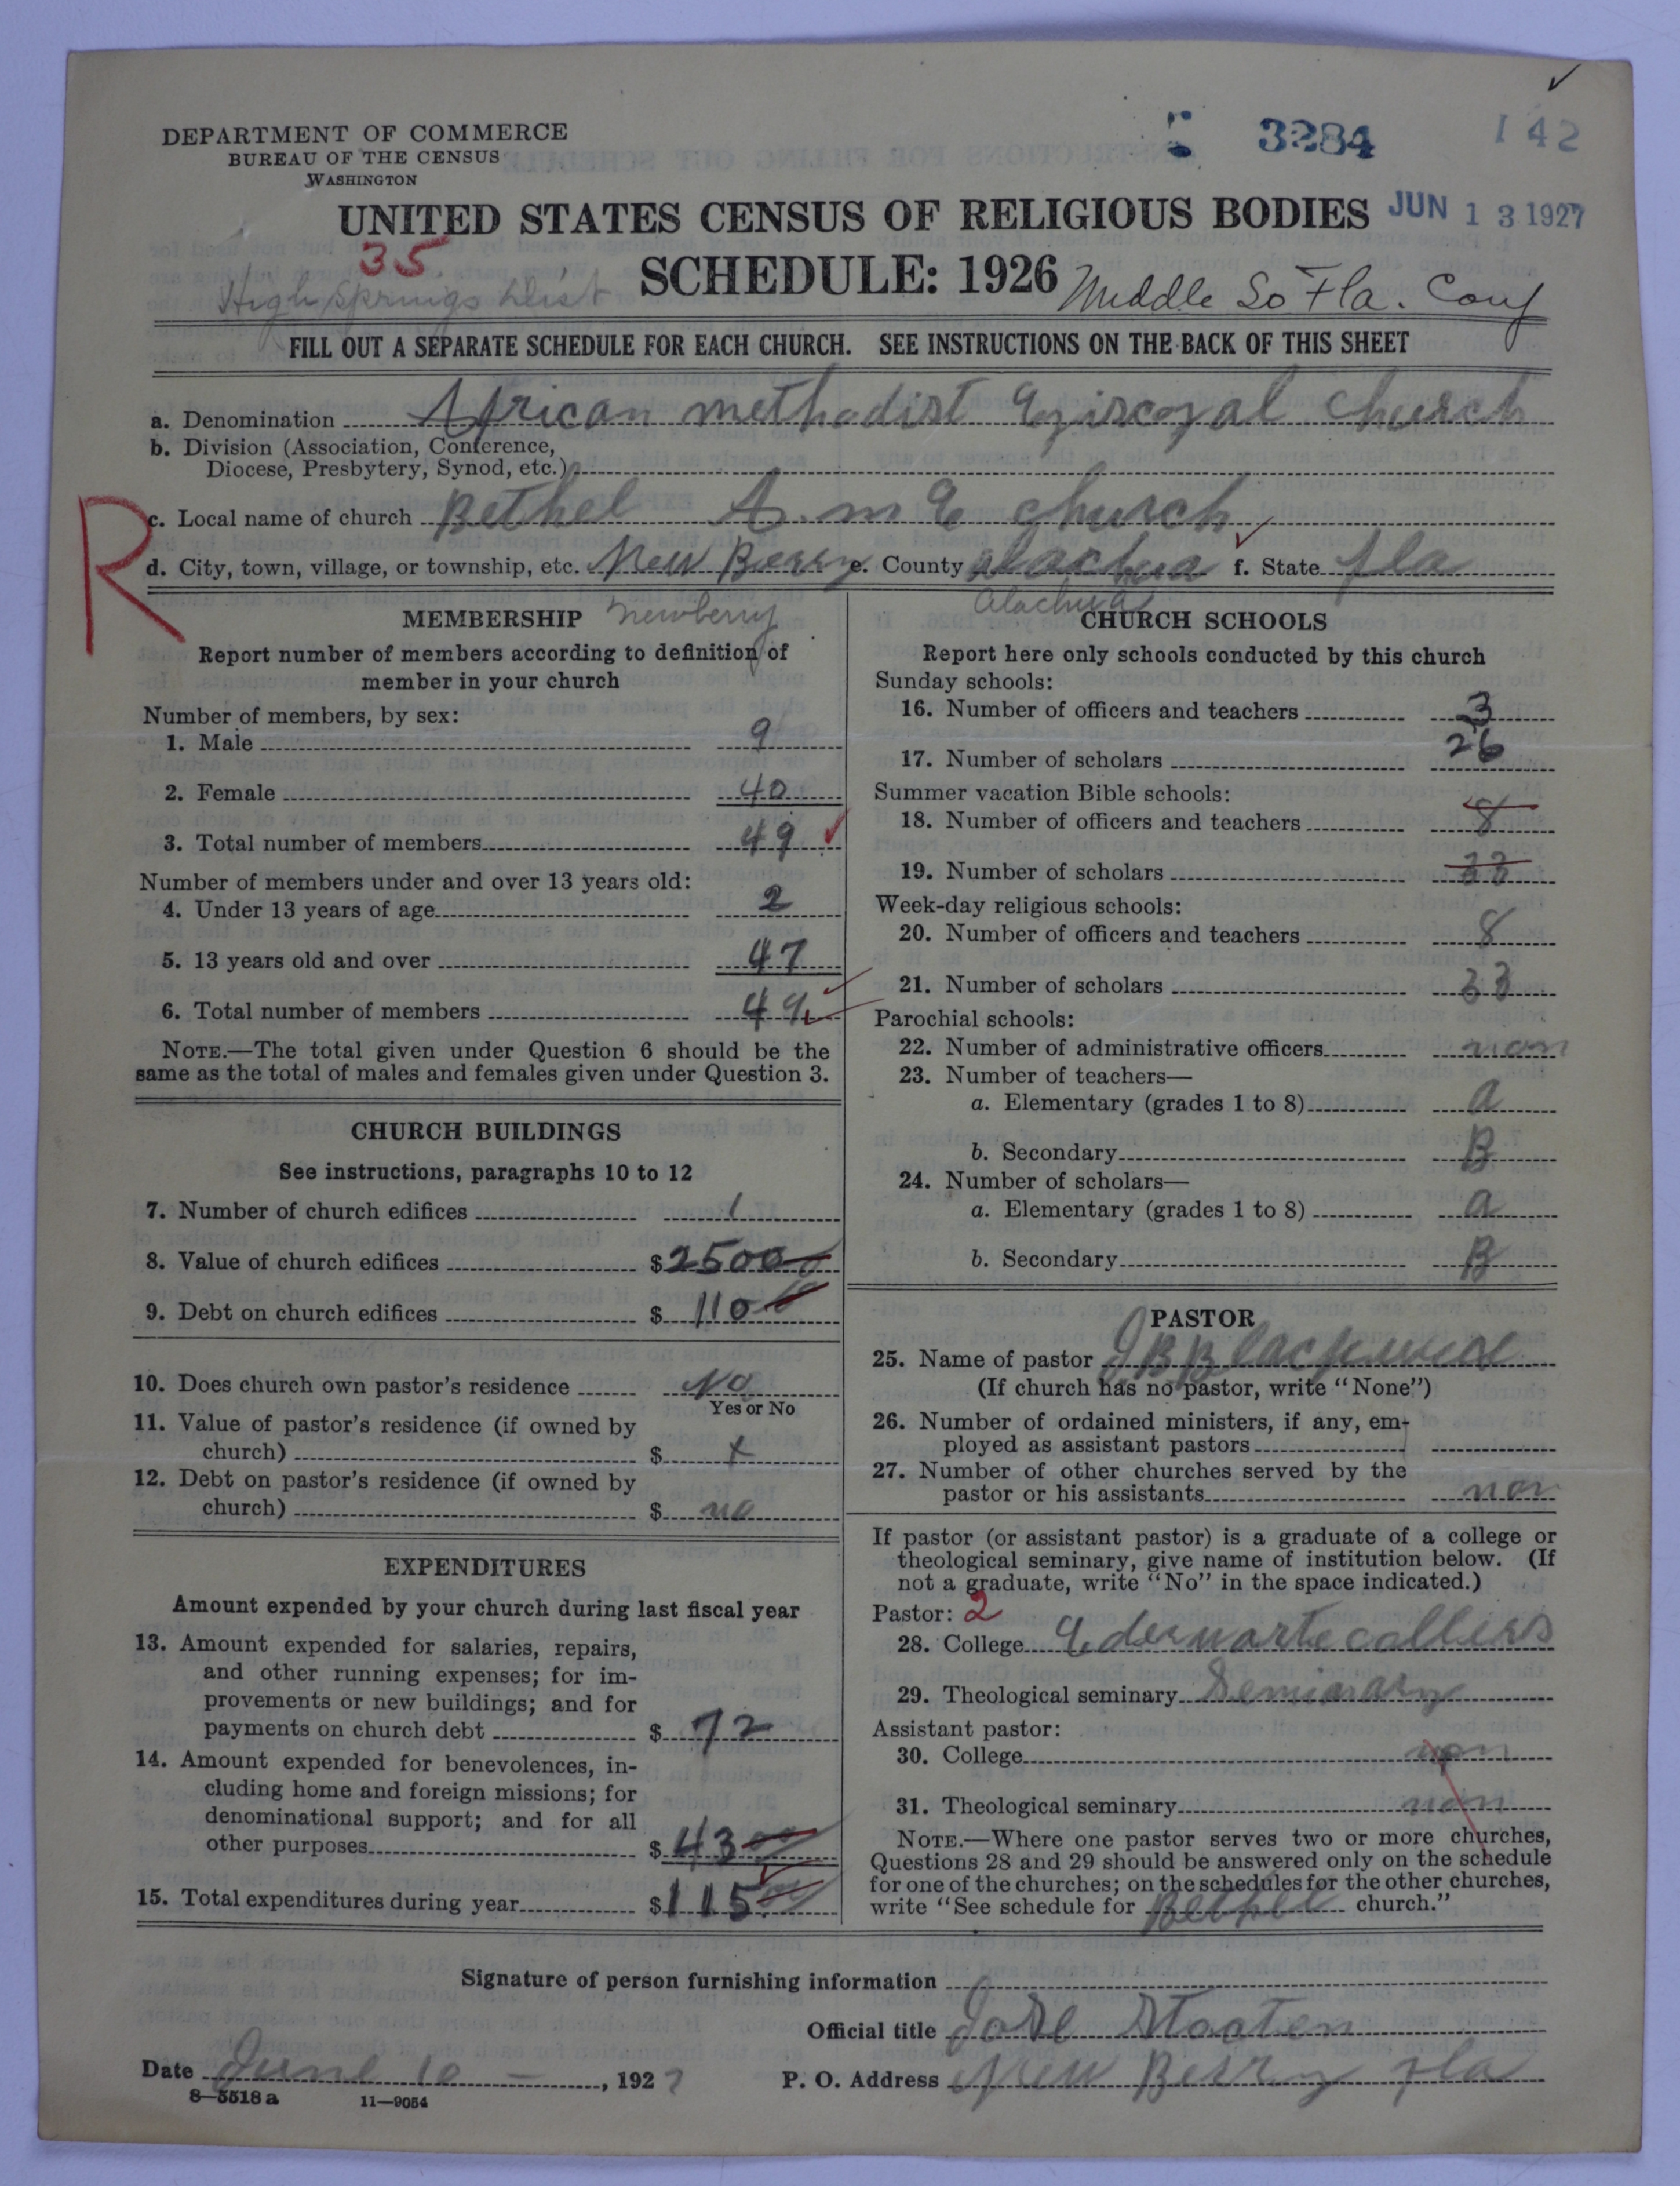 DEPARTMENT OF COMMERCE
BUREAU OF THE CENSUS
WASHINGTON
3284
142
UNITED STATES CENSUS OF RELIGIOUS BODIES
JUN 13 1927
35
High Springs Dist
SCHEDULE: 1926
Middle So Fla. Conf
FILL OUT A SEPARATE SCHEDULE FOR EACH CHURCH. SEE INSTRUCTIONS ON THE BACK OF THIS SHEET
a. Denomination African methodist Episcopal church
b. Division (Association, Conference,
Diocese, Presbytery, Synod, etc.)
R
c. Local name of church Bethel A. m E church
d. City, town, village, or township, etc. New Berry e. County alachua f. State fla
Newberry
Alachua
MEMBERSHIP
Report number of members according to definition of
member in your church
Number of members, by sex:
1. Male 9
2. Female 40
3. Total number of members 49
Number of members under and over 13 years old:
4. Under 13 years of age 2
5. 13 years old and over 47
6. Total number of members 49
NOTE.—The total given under Question 6 should be the
same as the total of males and females given under Question 3.
CHURCH BUILDINGS
See instructions, paragraphs 10 to 12
7. Number of church edifices 1
8. Value of church edifices $2500
9. Debt on church edifices $110
10. Does church own pastor's residence No
Yes or No
11. Value of pastor's residence (if owned by
church) $ x
12. Debt on pastor's residence (if owned by
church) $ no
EXPENDITURES
Amount expended by your church during last fiscal year
13. Amount expended for salaries, repairs,
and other running expenses; for im-
provements or new buildings; and for
payments on church debt $ 72
14. Amount expended for benevolences, in-
cluding home and foreign missions; for
denominational support; and for all
other purposes $ 43
15. Total expenditures during year $115
CHURCH SCHOOLS
Report here only schools conducted by this church
Sunday schools:
16. Number of officers and teachers 3
17. Number of scholars 26
Summer vacation Bible schools:
18. Number of officers and teachers 8
19. Number of scholars 33
Week-day religious schools:
20. Number of officers and teachers 8
21. Number of scholars 33
Parochial schools:
22. Number of administrative officers non
23. Number of teachers—
a. Elementary (grades 1 to 8) a
b. Secondary B
24. Number of scholars—
a. Elementary (grades 1 to 8) a
b. Secondary B
PASTOR
25. Name of pastor
(If church has no pastor, write "None")
26. Number of ordained ministers, if any, em-
ployed as assistant pastors
27. Number of other churches served by the
pastor or his assistants non
If pastor (or assistant pastor) is a graduate of a college or
theological seminary, give name of institution below. (If
not a graduate, write "No" in the space indicated.)
Pastor: 2
28. College
29. Theological seminary Seminary
Assistant pastor:
30. College non
31. Theological seminary non
NOTE.—Where one pastor serves two or more churches,
Questions 28 and 29 should be answered only on the schedule
for one of the churches; on the schedules for the other churches,
write "See schedule for Bethel church."
Signature of person furnishing information
Official title
Date June 10 , 1927
P. O. Address New Berry fla
8—5518 a
11—9054